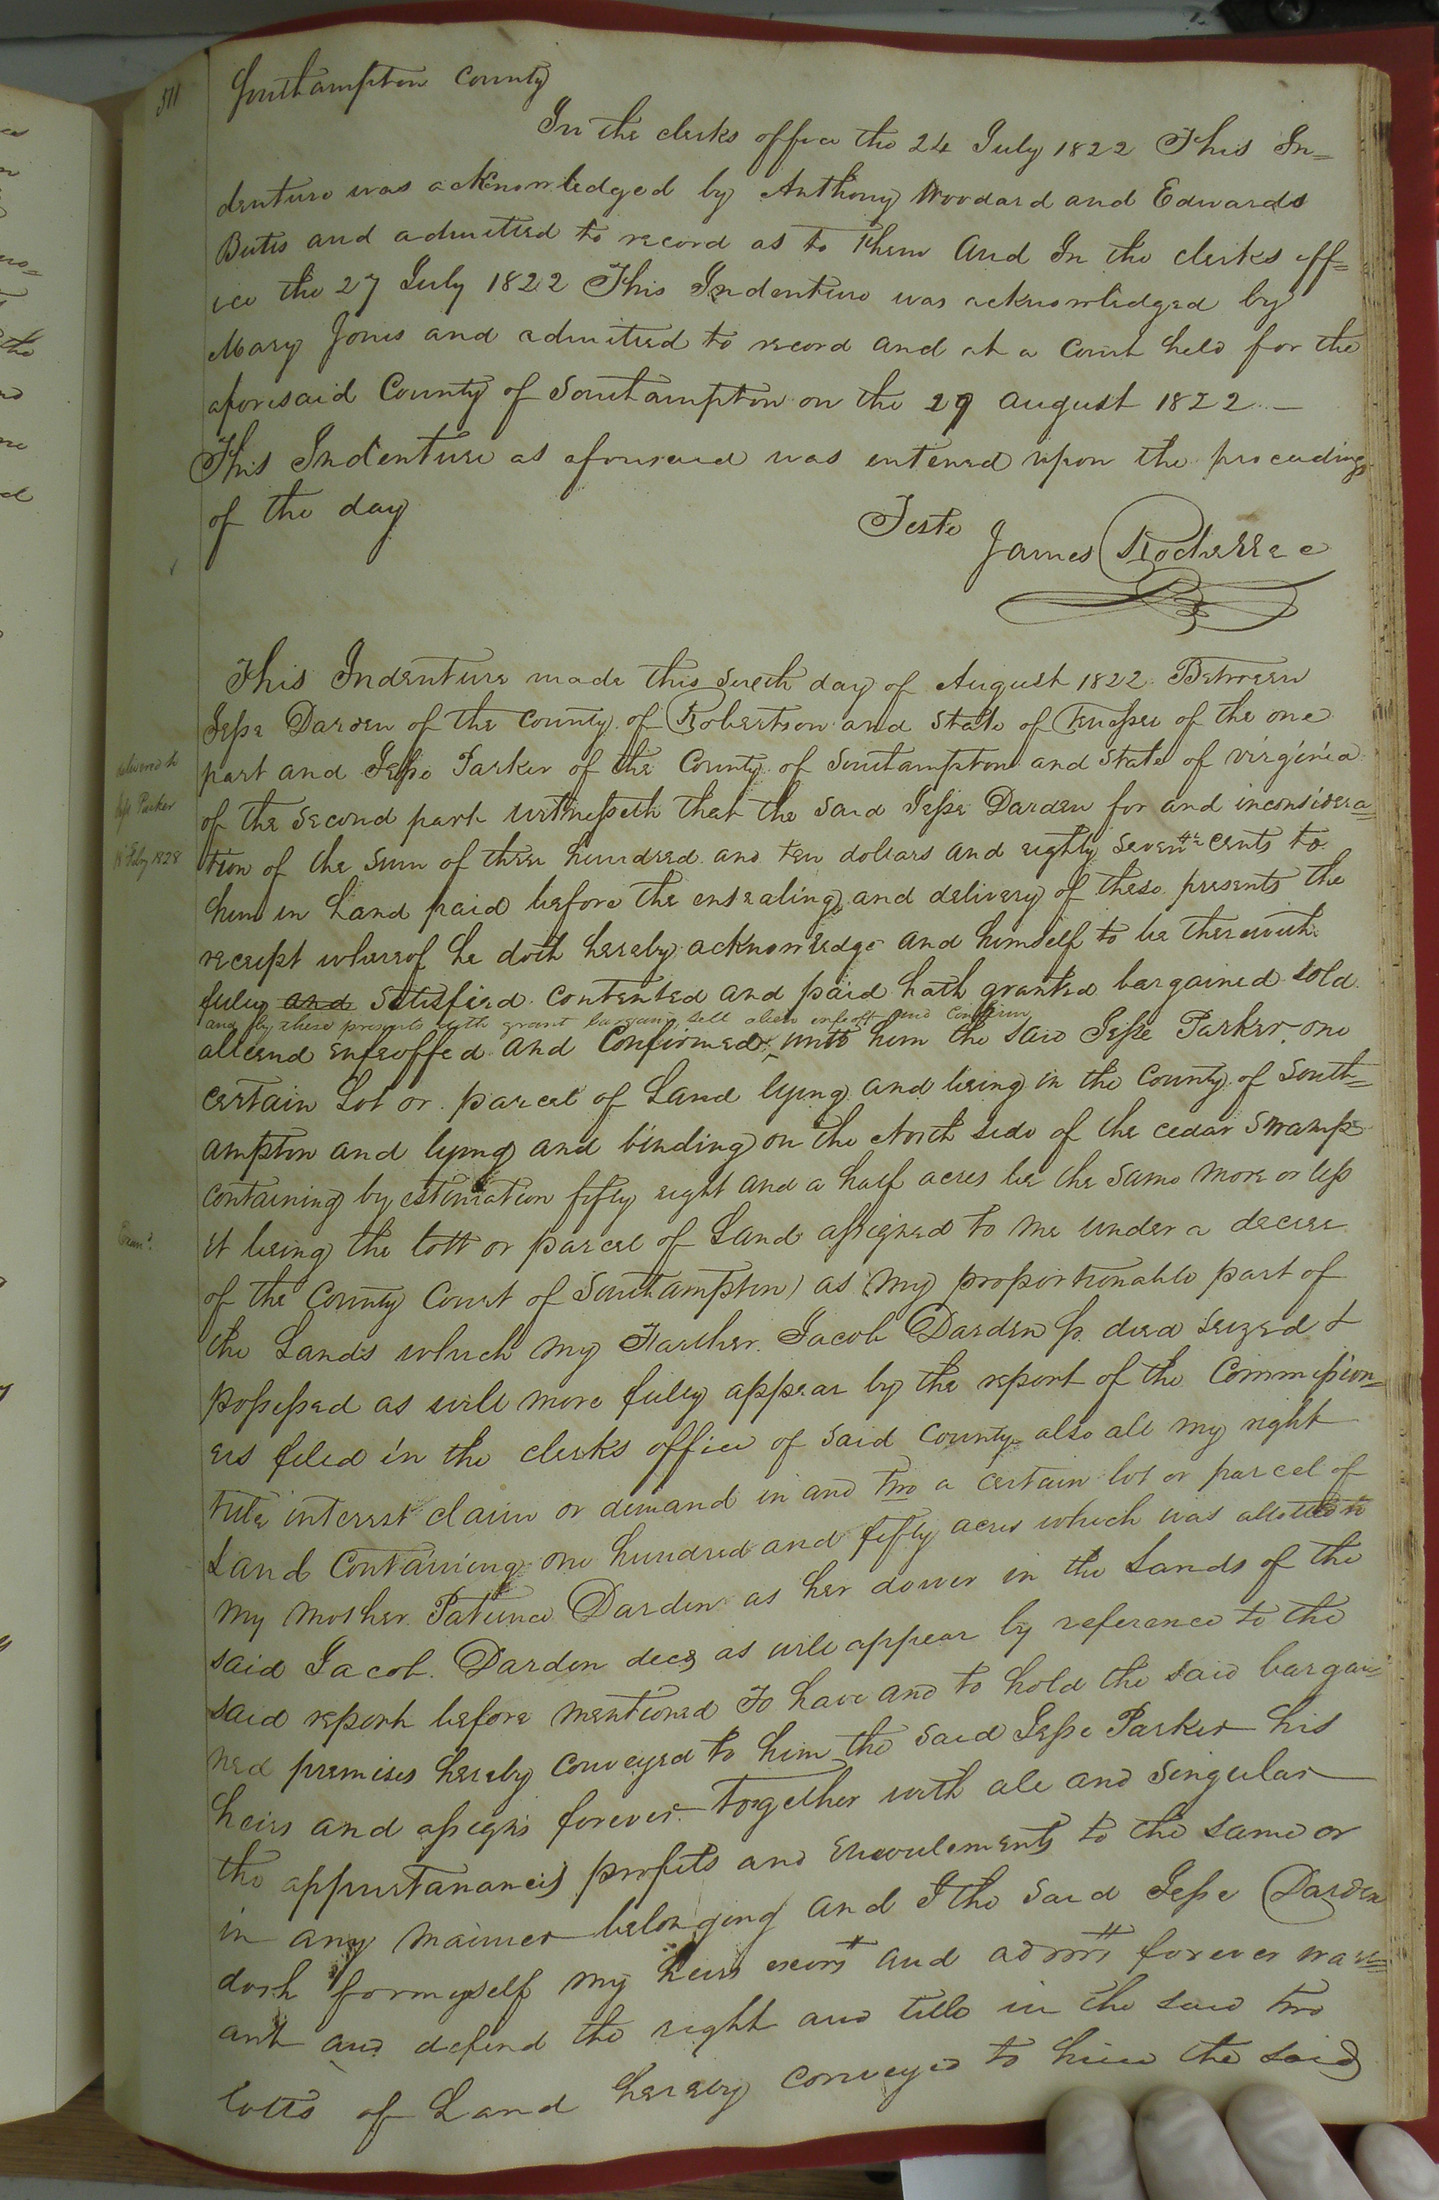 511
Southampton County
In the clerks office the 24 July 1822 This In=
denture was acknowledged by Anthony Woodard and Edwards
Butts and admitted to record as to them And In the clerks off=
ice the 27 July 1822 This Indenture was acknowledged by
Mary Jones and admitted to record and at a Court held for the
aforesaid County of Southampton on the 29 August 1822 —
This Indenture as aforesaid was entered upon the proceedings
of the day
Teste James Rochelle c
This Indenture made this Sixth day of August 1822 Between
Jesse Darden of the County of Robertson and State of Tenessee of the one
part and Jesse Parker of the County of Southampton and State of Virginia
of the Second part witnesseth that the said Jesse Darden for and inconsidera=
tion of the Sum of three hundred and ten dollars and eighty seven cents to
him in hand paid before the ensealing and delivery of these presents the
receipt whereof he doth hereby acknowledge and himself to be therewith
fully and Satisfied Contented and paid hath granted bargained sold
and by these presents doth grant bargain, sell alien enfeoff and Confirm
aliend enfeoffed and Confirmed unto him the said Jesse Parker one
certain Lot or parcel of Land lying and being in the County of South=
ampton and lying and binding on the North side of the cedar Swamp
containing by estimation fifty eight and a half acres be the same more or less
it being the lott or parcel of Land assigned to me under a decree
of the County Court of Southampton as my proportionable part of
the Lands which my Farther Jacob Darden died seized &
possessed as will more fully appear by the report of the Commission=
ers filed in the clerks office of said County also all my right
title interest claim or demand in and two a certain lot or parcel of
Land Containing one hundred and fifty acres which was allotted to
my mother Patience Darden as her dower in the Lands of the
said Jacob Darden decd as will appear by reference to the
said report before mentioned To have and to hold the said bargai=
ned premises hereby conveyed to him the said Jesse Parker his
heirs and assigns forever together with all and Singular
the appurtanances profits and emoulements to the same or
in any manner belonging And I the said Jesse Darden
doth for myself my heirs exors and admrs forever warr=
ant and defend the right and title in the said two
lotts of Land hereby conveyed to him the said
delivered to
Jesse Parker
18 Feby 1828
Examd.